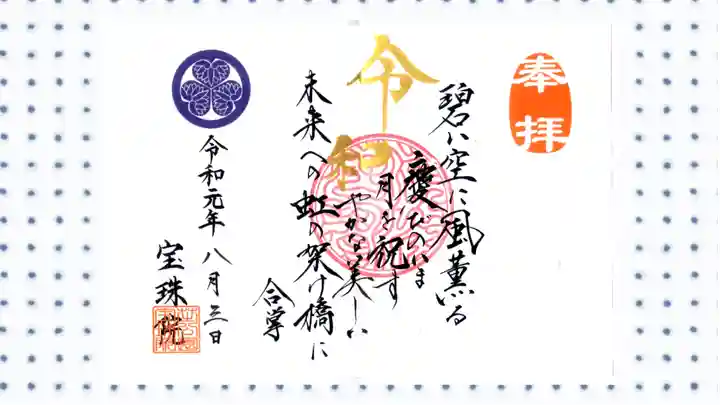 奉拝
令和
碧い空に風薫る
慶びのいま
月を祝す
やかな美しい
未来への虹の架け橋に
合掌
令和元年八月三日
宝珠院